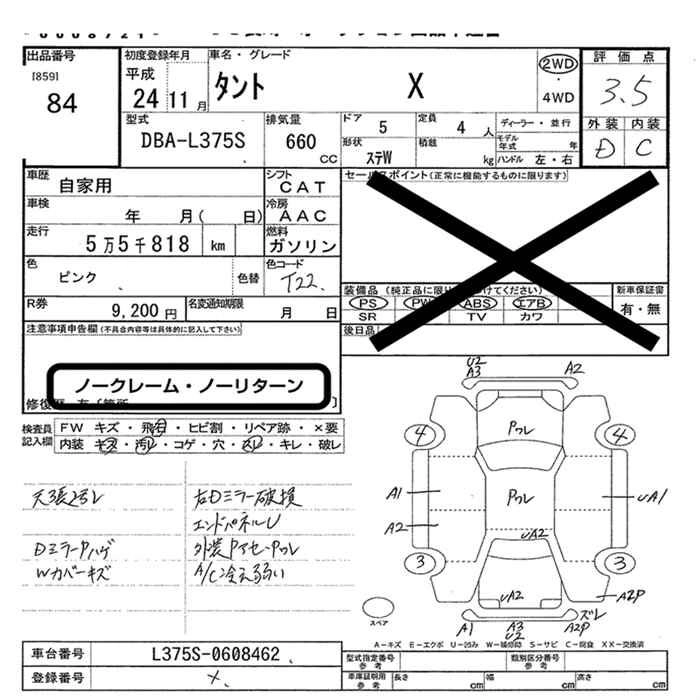 出品番号
[859]
84
初度登録年月
平成
24 11 月
車名・グレード
タント X
2WD
・
4WD
評価点
3.5
外装 内装
D C
型式
DBA-L375S
排気量
660
CC
ドア
5
定員
4 人
形状
ステW
積載
kg
ディーラー・並行
モデル
年式 年
ハンドル 左・右
車歴
自家用
シフト
CAT
車検
年 月( 日)
冷房
AAC
走行
5万5千818 km
燃料
ガソリン
色
ピンク
色替
色コード
T22
R券
9,200 円
名変通知期限
月 日
セールスポイント(正常に機能するものに限ります)
装備品
PS PW ABS エアB
SR TV カワ
後日品
新車保証書
有・無
注意事項申告欄(不具合内容等は具体的に記入して下さい)
ノークレーム・ノーリターン
検査員
記入欄
FW キズ・飛石・ヒビ割・リペア跡・×要
内装 キズ・汚れ・コゲ・穴・スレ・キレ・破レ
天張汚レ
右Dミラー破損
エンドパネルU
DミラーPハゲ
外装PアセPワレ
Wカバーキズ
A/C冷え弱い
U2
A3
A2
4
4
Pワレ
A1
Pワレ
UA1
A2
UA2
3
3
UA2
A2P
ズレ
A1
A3
U2
A2P
スペア
A-キズ E-エクボ U-凹み W-補修跡 S-サビ C-腐食 XX-交換済
車台番号
L375S-0608462
登録番号
×
型式指定番号
参考
類別区分番号
参考
車庫証明用
参考
長さ cm
幅 cm
高さ cm